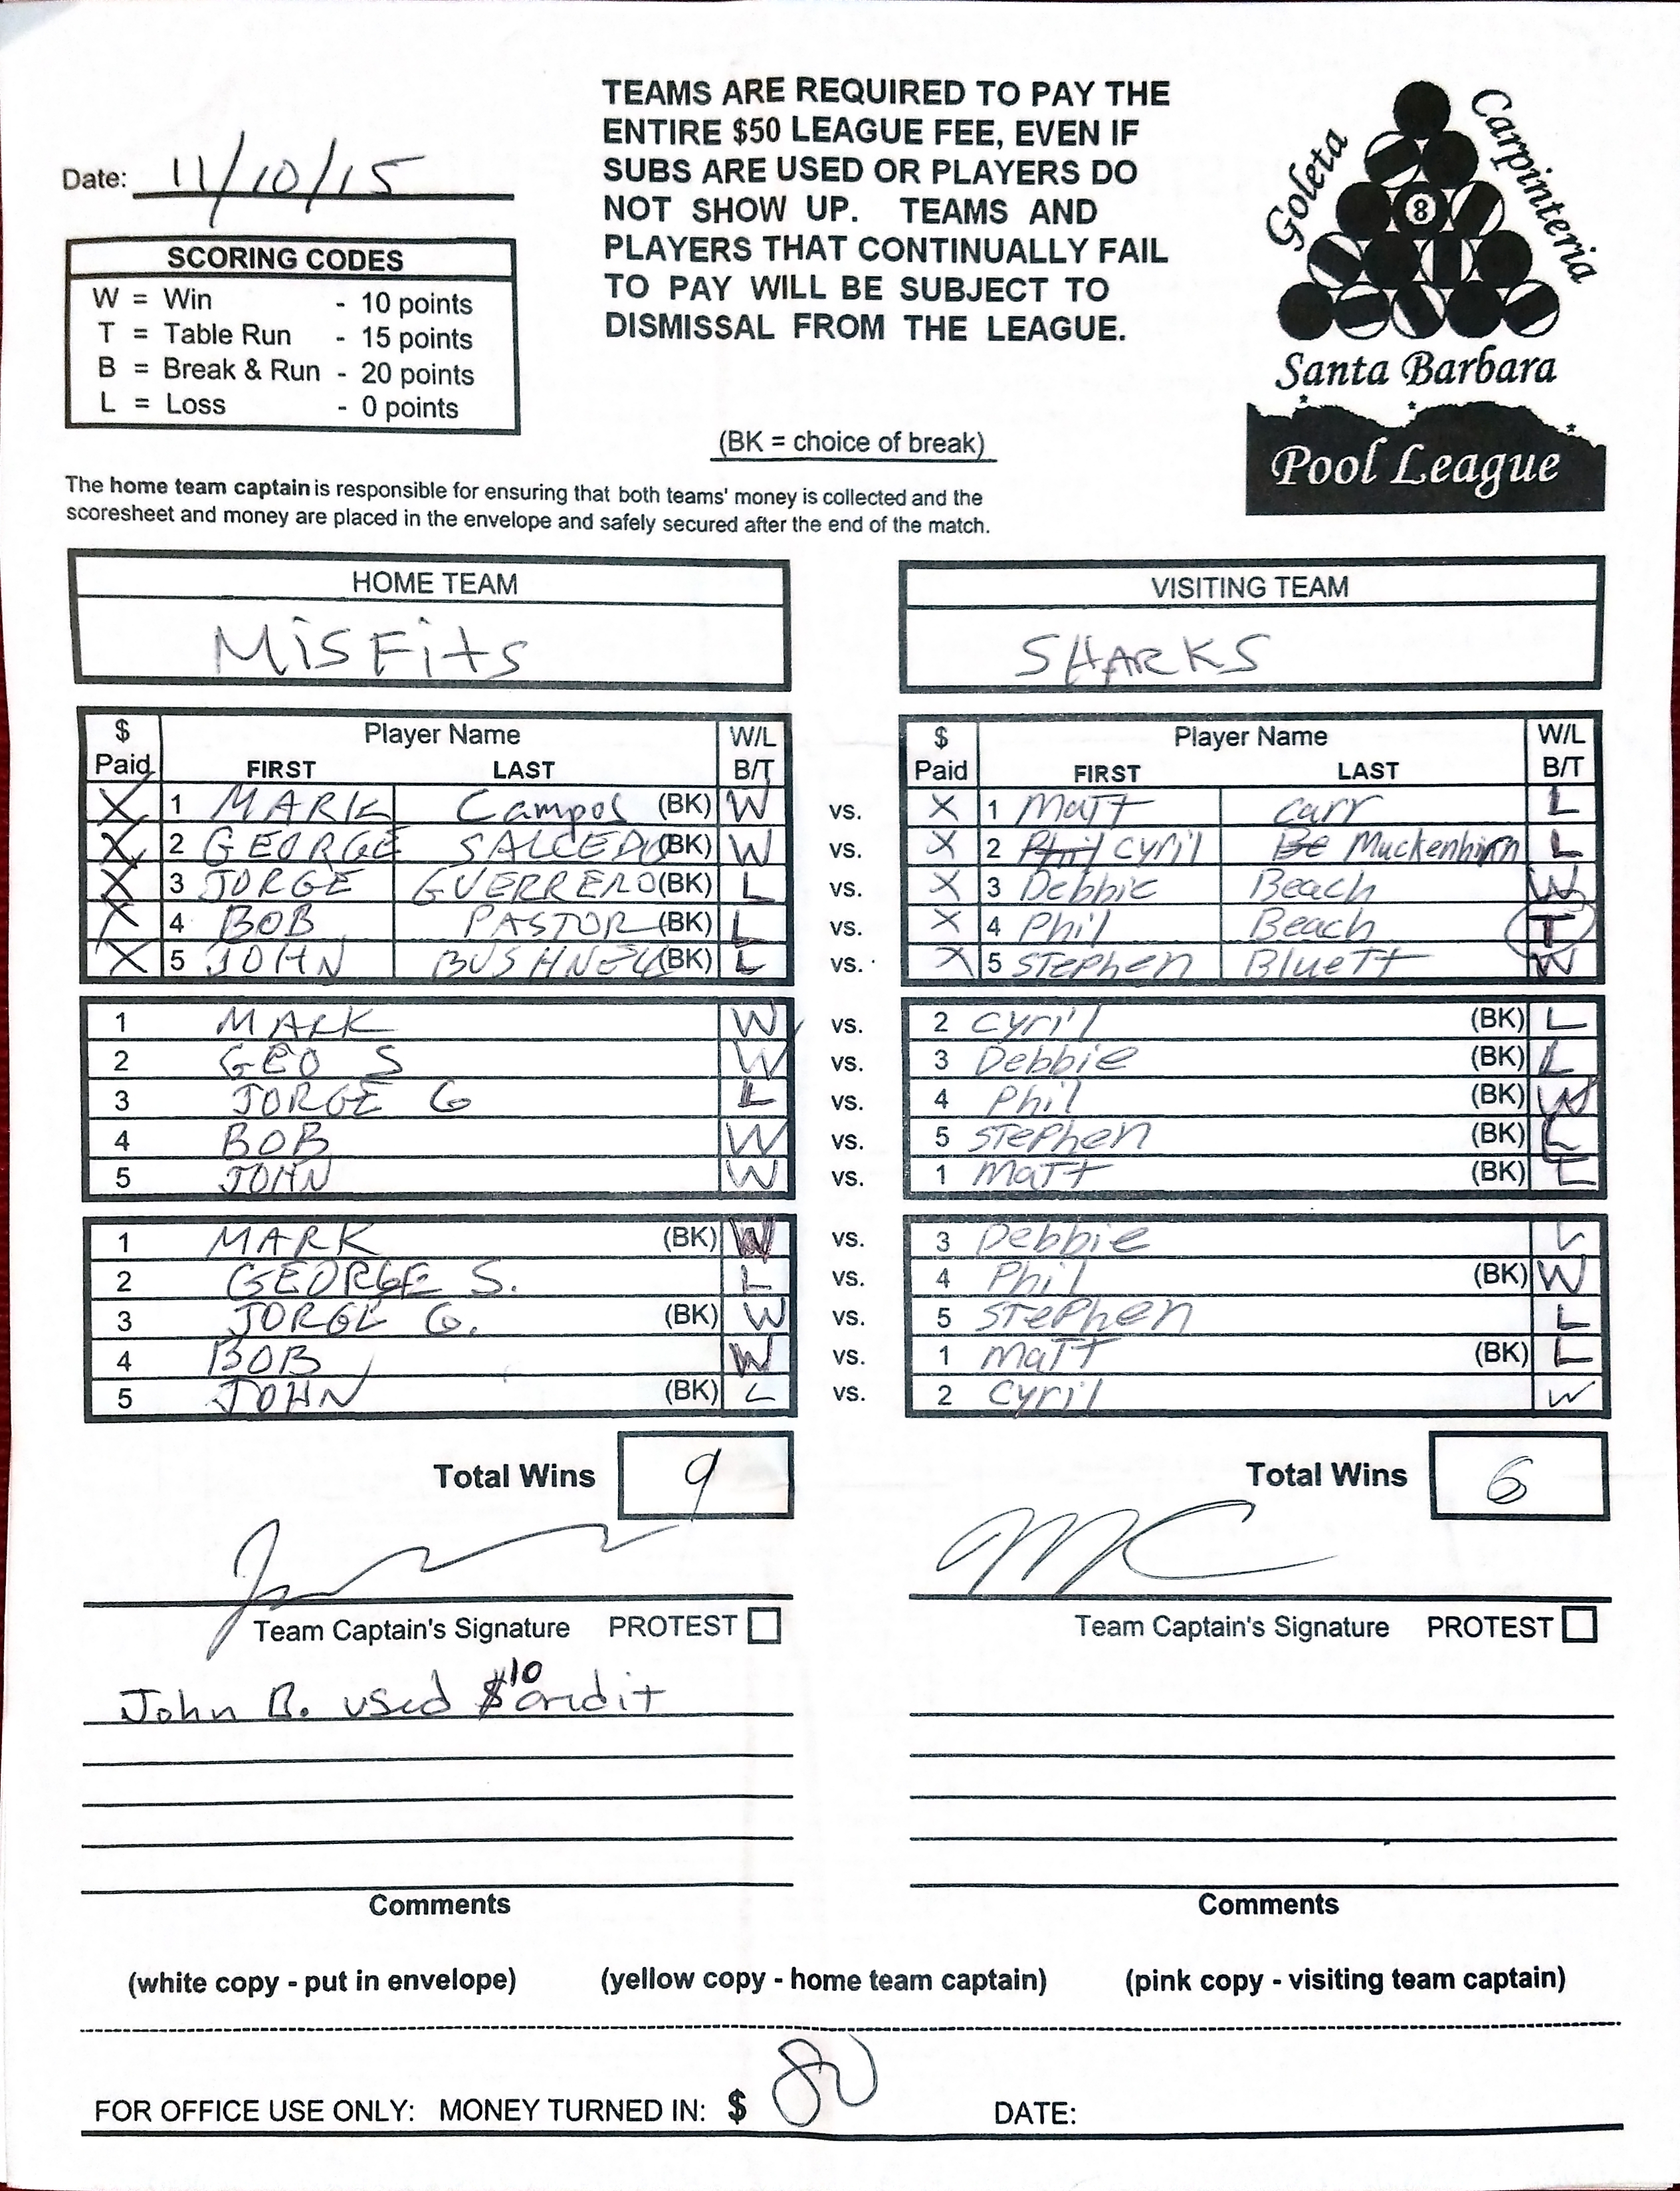 TEAMS ARE REQUIRED TO PAY THE
ENTIRE $50 LEAGUE FEE, EVEN IF
SUBS ARE USED OR PLAYERS DO
NOT SHOW UP. TEAMS AND
PLAYERS THAT CONTINUALLY FAIL
TO PAY WILL BE SUBJECT TO
DISMISSAL FROM THE LEAGUE.
Goleta
Carpinteria
8
Santa Barbara
Pool League
Date: 11/10/15
SCORING CODES
W = Win - 10 points
T = Table Run - 15 points
B = Break & Run - 20 points
L = Loss - 0 points
(BK = choice of break)
The home team captain is responsible for ensuring that both teams' money is collected and the
scoresheet and money are placed in the envelope and safely secured after the end of the match.
HOME TEAM VISITING TEAM
MisFits SHARKS
$ Player Name W/L $ Player Name W/L
Paid FIRST LAST B/T Paid FIRST LAST B/T
X 1 MARK Campos (BK) W vs. X 1 Matt Carr L
X 2 GEORGE SALCEDO (BK) W vs. X 2 Phil Cyril Be Muckenhirn L
X 3 JORGE GUERRERO (BK) L vs. X 3 Debbie Beach W
X 4 BOB PASTOR (BK) L vs. X 4 Phil Beach T
X 5 JOHN BUSHNELL (BK) L vs. X 5 STEPhen BlueTT W
1 MARK W vs. 2 Cyril (BK) L
2 GEO S W vs. 3 Debbie (BK) L
3 JORGE G L vs. 4 Phil (BK) W
4 BOB W vs. 5 STEPhen (BK) L
5 JOHN W vs. 1 MaTT (BK) L
1 MARK (BK) W vs. 3 Debbie L
2 GEORGE S. L vs. 4 Phil (BK) W
3 JORGE G. (BK) W vs. 5 STEPhen L
4 BOB W vs. 1 MaTT (BK) L
5 JOHN (BK) L vs. 2 Cyril W
Total Wins 9 Total Wins 6
MC
Team Captain's Signature PROTEST Team Captain's Signature PROTEST
John B. used $10 credit
Comments Comments
(white copy - put in envelope) (yellow copy - home team captain) (pink copy - visiting team captain)
FOR OFFICE USE ONLY: MONEY TURNED IN: $ 80 DATE: